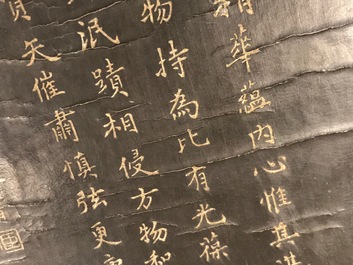 華蘊內心惟其
物持為比有光葆
泯蹟相侵方物
矢催肅慎弦更
圖